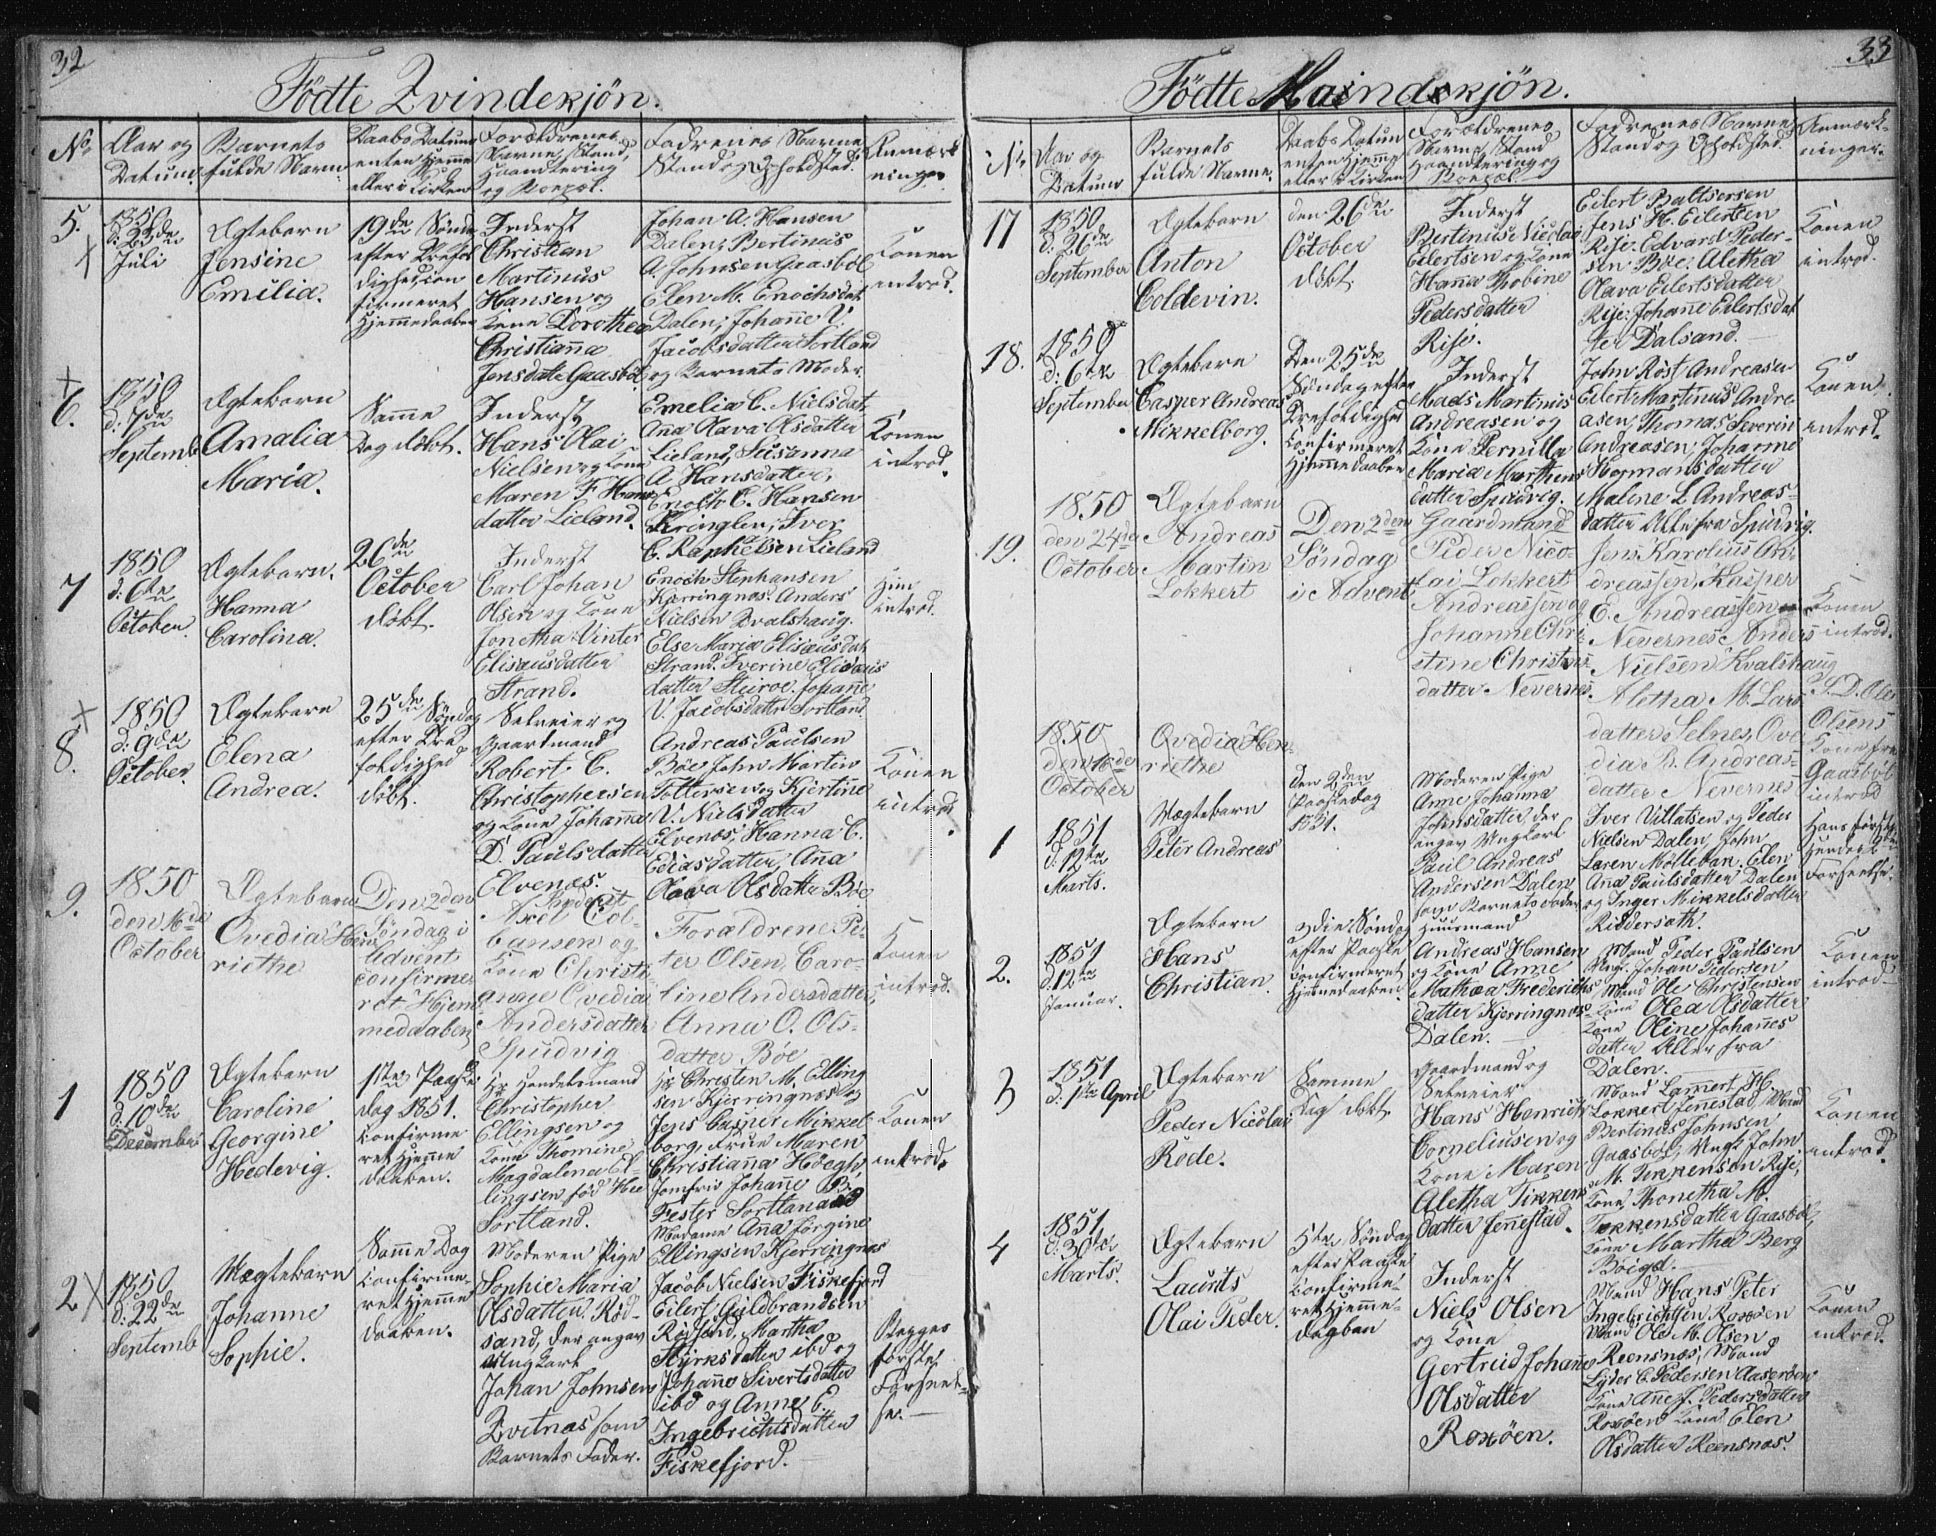 32
Födte Qvindekjön.
No.
Aar og
Datum.
Barnets
fulde Navn
Daabs Datum
enten Hjemme
eller i Kirken
Forældrenes
Navne, Stand,
Haandtering
og Bopæl.
Fadrenes Navne
Stand og Opholdsted.
Anmærk
ninger
5.
1850
d: 23de
Juli
Ægtebarn
Jensine
Emilia.
19de Sönd
efter Trefol
dighed, con
firmeret
Hjemmedaaben
Inderst
Christian
Martinus
Hansen og
Kone Dorothea
Christianna
Jensdatt Gaasböl
Johan A. Hansen
Dalen; Bertinus
A. Johnsen Gaasböl
Elen M. Enochsdat
Dalen; Johanne V.
Jacobsdatter Sortland
og Barnets Moder.
Konen
introd.
6.
1850
d: 7de
Septemb
Ægtebarn
Amalia
Maria.
Samme
Dag döbt.
Inderst
Hans Olai
Nielsen og Kone
Maren F. Hans
datter Lieland.
Emelia C. Nielsdat
Ana Olava Olsdatter
Lieland, Susanna
A. Hansdatter,
Enoch C. Hansen
Kringlen; Iver
C. Raphelsen Lieland
Konen
introd.
7
1850
d: 6te
October.
Ægtebarn.
Hanna
Carolina.
26de
October
döbt.
Inderst
Carl Johan
Olsen og Kone
Jonetha Vinter
Elisæusdatter
Strand.
Enoch Stenhansen
Kjerringnæs. Anders
Nielsen Kvalshaug.
Else Maria Elisæusdat
Strand. Iverine Elisæus
datter Steiroe. Johanne
V. Jacobsdatter Sortland.
introd.
8.
1850
d: 9de
October.
Ægtebarn
Elena
Andrea.
25de Söndag
efter Tre
foldighed
döbt.
Selveier og
Gaardmand
Robert C.
Christophersen
og Kone Johanna
D. Paulsdatter
Elvenæs.
Andreas Paulsen
Böe, John Martin
Tottersen og Kjertine
V. Nielsdatter
Elvenæs, Hanna C.
Ediasdatter, Ana
Olava Olsdatter Böe
Konen
introd.
9.
1850
den 16de
October
Ægtebarn
Ovedia Hen
riethe
Den 2den
Söndag i
Advent
confirme
ret Hjem
meddaben
Inderst
Axel Col
bansen og
Kone Christi
anne Ovedia
Andersdatter
Spudvig
Foraldrene Pe-
ter Olsen, Caro-
line Andersdatter,
Anna O. Ols-
datter Böe
Konen
introd.
1
1850
d: 10de
December
Ægtebarn
Caroline
Georgine
Hedevig.
1ste Paaske
dag 1851.
Confirme
ret Hjemme
daaben.
Hr. Handelsmand
Christopher
Ellingsen og
Kone Thomine
Magdalena El-
lingsen, föd Hee
Sortland.
Hr. Christen M. Elling
sen Kjerringnæs og
Jens Casper Mikkel
borg. Frue Maren
Christianna Höegh,
Jomfru Johanne B.
Fester Sortland
Madame Ana Jörgine
Ellingsen Kjerringnæs
Konen
introd.
2
1850
d: 22de
Septemb
Uægtebarn
Johanne
Sophie.
Samme Dag
Confirme-
ret Hjemme
daaben.
Moderen Pige
Sophie Maria
Olsdatter Röd-
sand, der angav
Ungkarl
Johan Johnsen
Kvitnæs som
Barnets Fader.
Jacob Nielsen Fiskefjord
Eilert Guldbrandsen
Rödsand, Martha
Styrksdatter ibd og
Johanne Sivertsdatter
ibd og Anne E.
Ingebrichtsdatter
Fiskefjord.
Begges
förste
Forseel-
se.
33
Födte Mandkjön.
No.
Aar og
Datum
Barnets
fulde Navne.
Daabs Datum
enten Hjemme
eller i Kirken
Forældrenes
Navne, Stand
Haandtering og
Bopæl
Fadrenes Navne
Stand og Opholdsted.
Anmærk-
ninger.
17
1850.
d: 26de
September
Ægtebarn
Anton
Coldevin.
den 26de
October
döbt.
Inderst
Bertinus Nicolai
Eilertsen og Kone
Hanna Thobine
Pedersdatter
Rise.
Eilert Baltsersen
Jens H. Eilertsen
Rise. Edvard Peder-
sen Böe. Aletha
Olava Eilertsdatter
Rise. Johanne Eilertsdat
ter Dalsand.
Konen
introd.
18.
1850
d: 6te
September
Ægtebarn
Casper Andreas
Mikkelborg.
Den 25de
Söndag efter
Trefoldighed
Confirmeret
Hjemmedaaben
Inderst
Mads Martinus
Andreasen og
Kone Pernilla
Maria Marthins
datter Spudvig.
John Röst Andreasen
Eilert Martinus Andre
asen, Thomas Severin
Andreasen, Johanna
Thormansdatter
Malene L. Andreas-
datter Alle fra Spudvig.
Konen
introd.
19.
1850
den 24de
October
Ægtebarn
Andreas
Martin
Lokkert
Den 2den
Söndag
i Advent
Gaardmand
Peder Nico-
lai Lokkert
Andreassen og
Johanne Chri
stine Christens
datter Nevernes.
Jens Karolius An-
dreassen, Kasper
E. Andreassen
Nevernes Anders
Nielsen Kvalshaug
Aletha M. Lars
datter Selnes, Ove
dia B. Andreas-
datter Nevernes
Konen
introd.
J. D. Ole
Olsens
Kone fra
Gaasböl
introd
1850
den 16de
October
Ovedia Hen-
riethe
1
1851
d: 12te
Marts.
Uægtebarn
Peter Andreas
Den 2den
Paaskedag
1851.
Moderen Pige
Anne Johanna
Johnsdatter, der
angav Ungkarl
Paul Andreas
Andersen Dalen
som Barnets Fader
Iver Villatsen og Peder
Nielsen Dalen, John
Larsen Möllebak. Elen
Ana Paulsdatter Dalen
og Inger Mikkelsdatter
Riddersath.
Hans förste
Hendes 2den
Forseelse.
2.
1851
d. 12te
Januar.
Ægtebarn
Hans
Christian.
3die Söndag
efter Paaske
Confirmeret
Hjemmedaaben.
Huusmand
Andreas Hansen
og Kone Anne
Mathea Frederichs
datter Kjerringnæs-
Dalen.
Mand Peder Paulsen
Ung. Johan Pedersen
Mand Ole Christensen
Kone Olea Olsdatter
Kone Oline Johannes
datter Aller fra
Dalen.
Konen
introd.
3
1851
d: 1ste April
Ægtebarn
Peder Nicolai
Rode.
Samme
Dag döbt
Gaardmand og
Selveier
Hans Henrich
Corneliusen og
Kone Maren
Aletha Tikkens
datter Jennestad.
Mand Lamert H.
Lokkert Jennestad, Mand
Bertinus Johnsen
Gaasböl, Ungk. John
M. Tekkensen Rise,
Kone Thonetha M.
Tekkensdatter Gaasböl,
Kone Martha Berg
Böigd.
Konen
introd.
4
1851
d: 30te
Marts.
Ægtebarn
Laurits
Olai Peder.
5te Söndag
efter Paaske
Confirme-
ret Hjemme-
dagban
Inderst
Niels Olsen
og Kone
Gertruid Johanne
Olsdatter
Roxöen.
Mand Hans Peter
Ingebrichtsen Roxöen
Mand Ole M. Olsen
Reensnæs, Mand
Lyder C. Pedersen Aaseröen
Kone Ane J. Pedersdatter
Roxöen Kone Elen
Olsdatter Reensnæs.
Konen
introd.